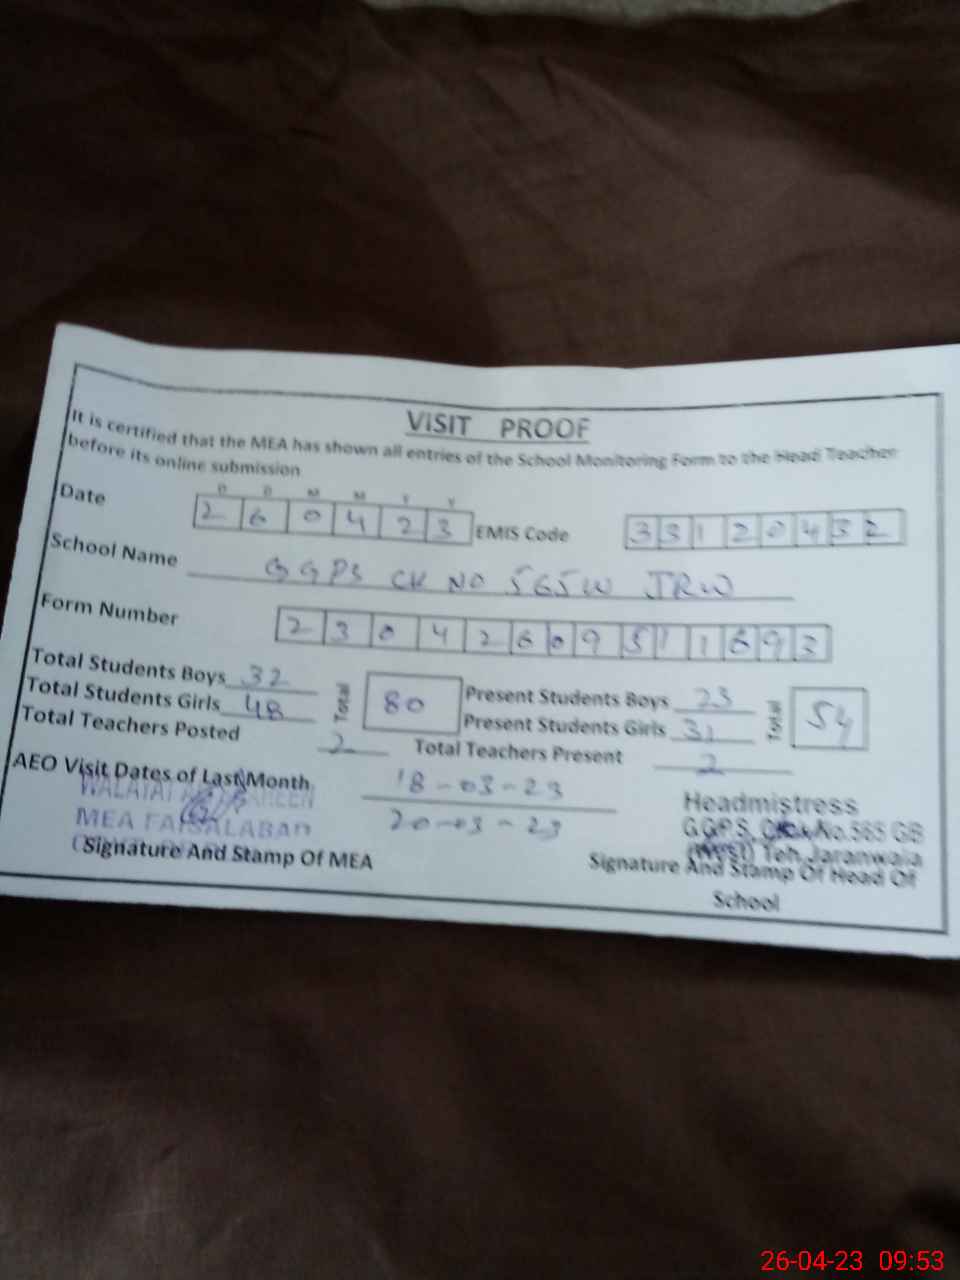 VISIT PROOF
It is certified that the MEA has shown all entries of the School Monitoring Form to the Head Teacher
before its online submission
D D M M Y Y
Date 2 6 0 4 2 3 EMIS Code 3 3 1 2 0 4 3 2
School Name GGPS CK NO 565W JRW
Form Number 2 3 0 4 2 6 0 9 5 1 1 6 9 3
Total Students Boys 32 Total 80 Present Students Boys 23 Total 54
Total Students Girls 48 Present Students Girls 31
Total Teachers Posted 2 Total Teachers Present 2
AEO Visit Dates of Last Month 18-03-23
20-03-23
MEA FAISALABAD
Signature And Stamp Of MEA
Headmistress
G.G.P.S, Chak No.565 GB
(West) Teh Jaranwala
Signature And Stamp Of Head Of
School
26-04-23 09:53